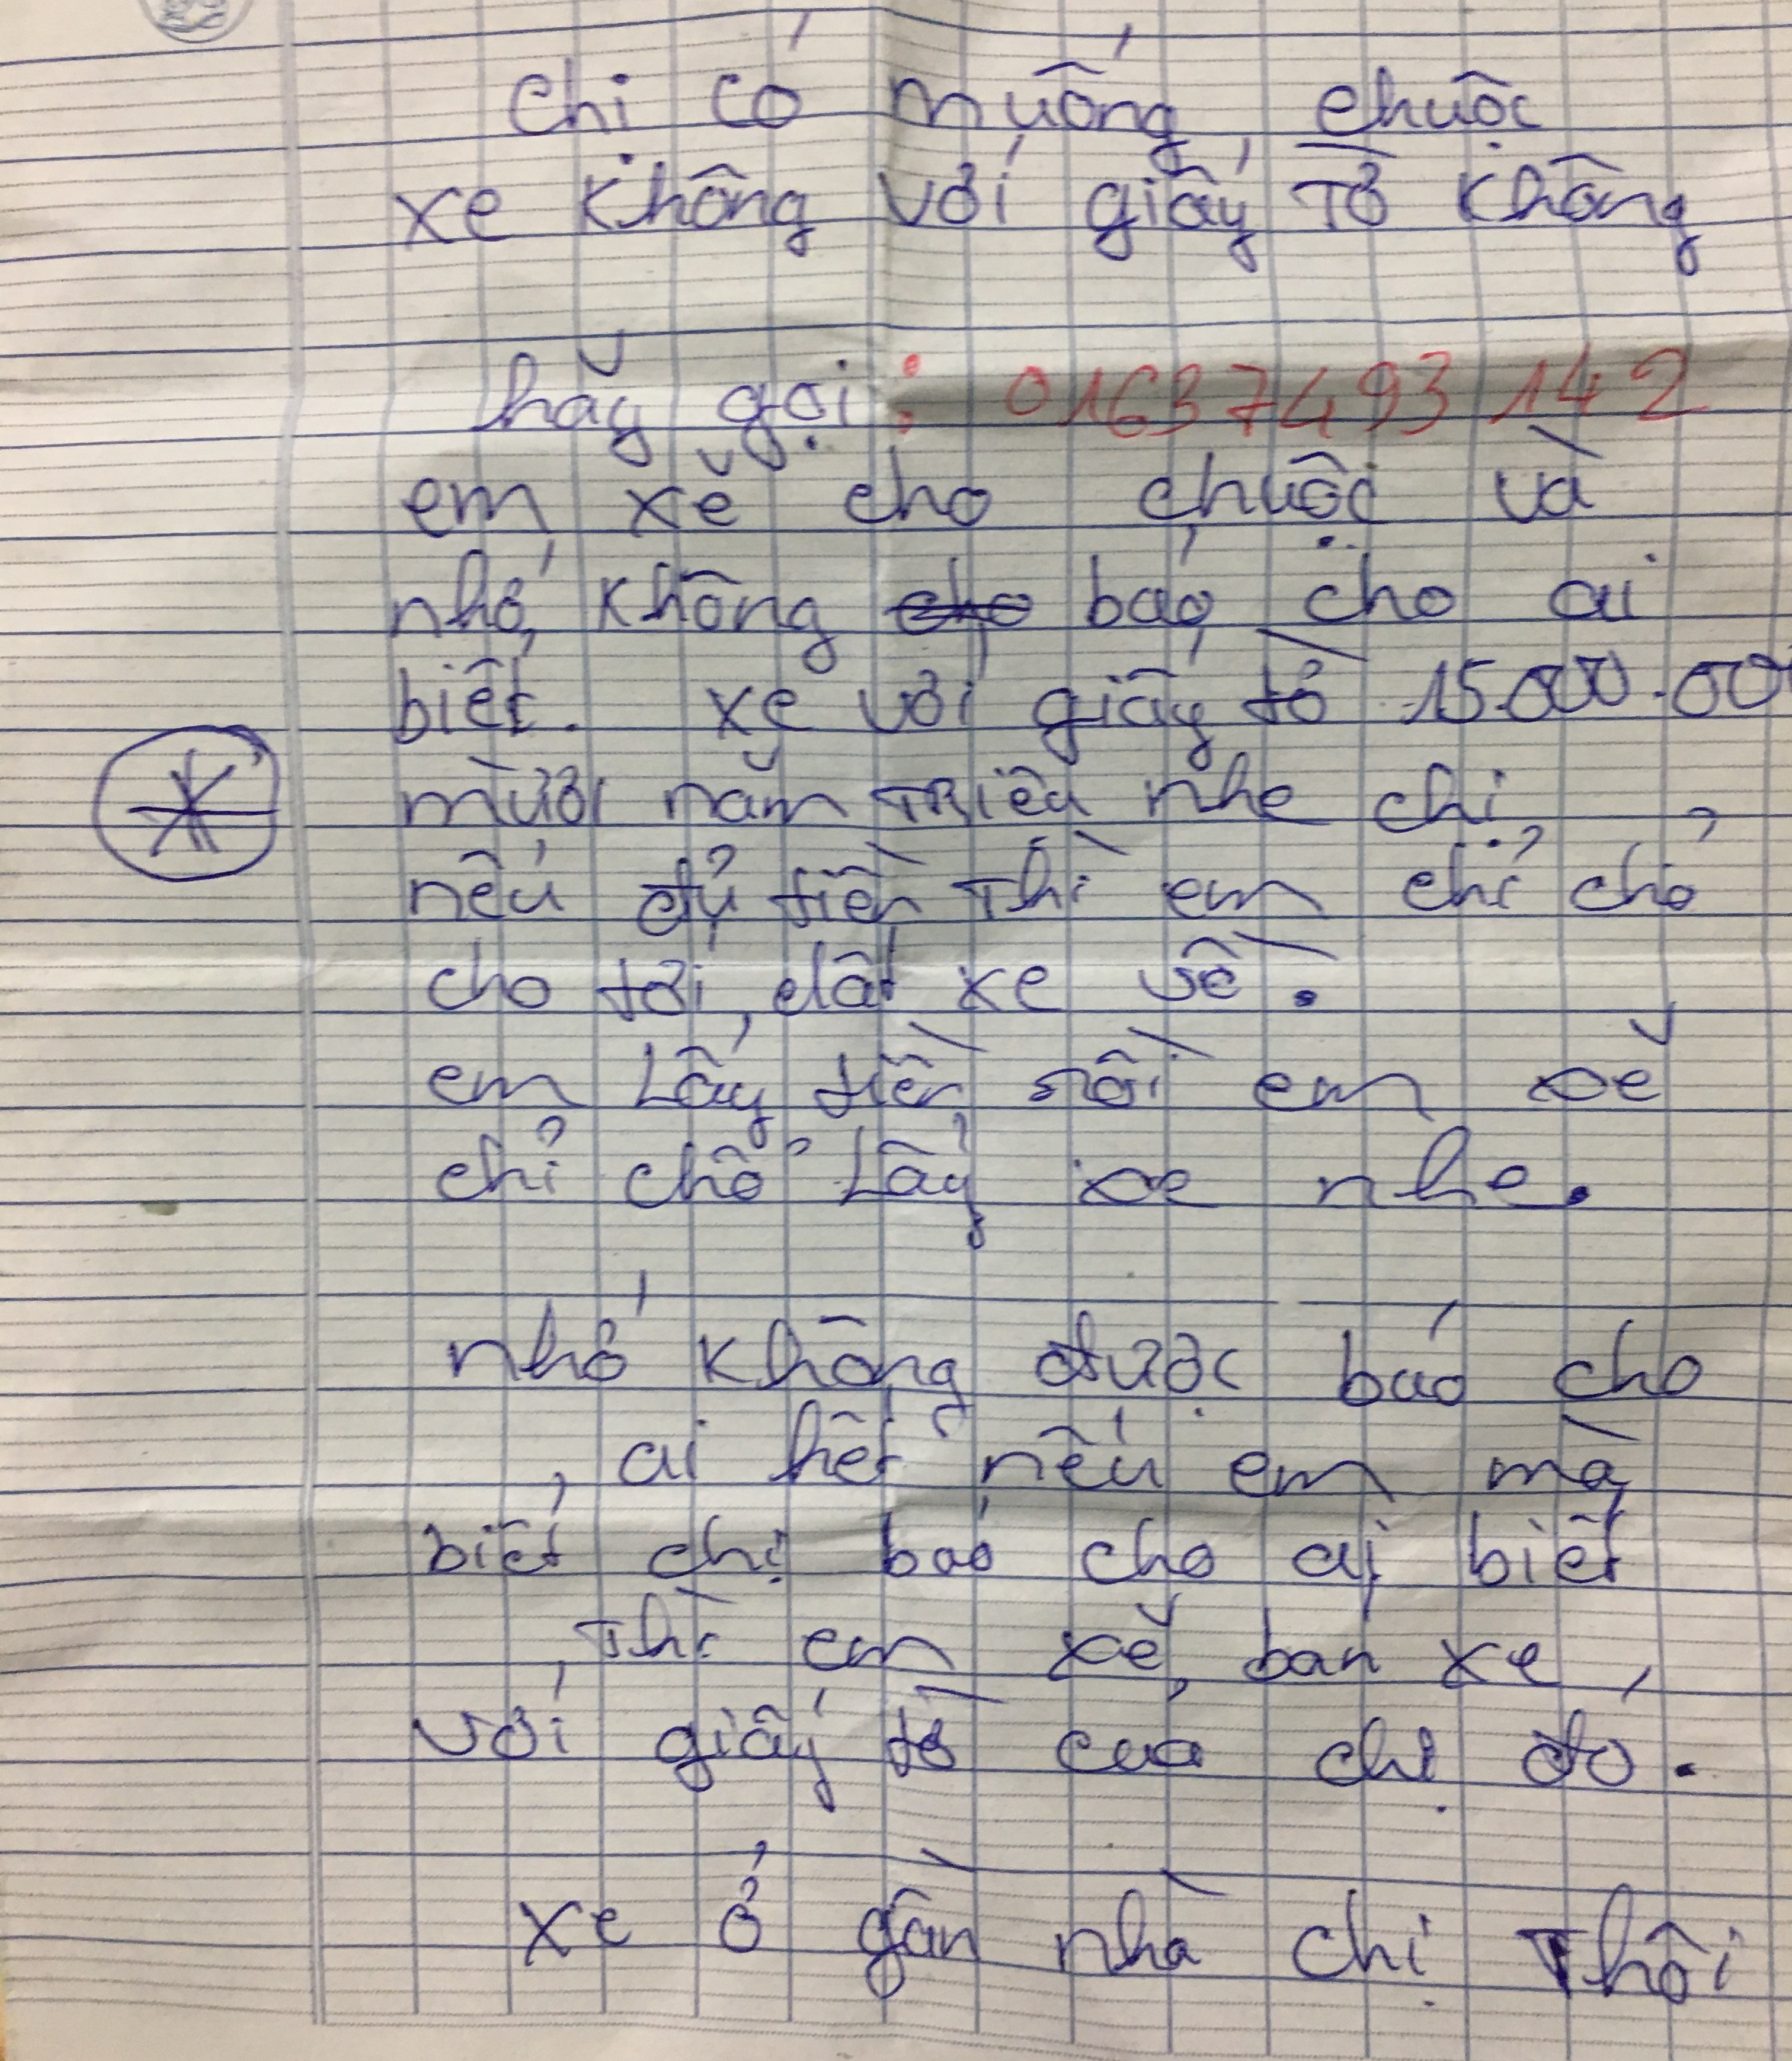 chị có muống chuộc
xe không với giấy tờ không
hãy gọi : 01637493142
em xẽ cho chuộc và
nhớ không cho báo cho ai
biết. xe với giấy tờ 15.000.000
mười năm triệu nhe chị
nếu đủ tiền thì em chỉ chỏ
cho tới dắt xe về.
em lấy tiền rồi em xẽ
chỉ chổ lấy xe nhe.
nhớ không được báo cho
ai hết nếu em mà
biết chị báo cho ai biết
thì em xẽ bán xe
với giấy tờ của chị đó.
xe ở gần nhà chị thôi